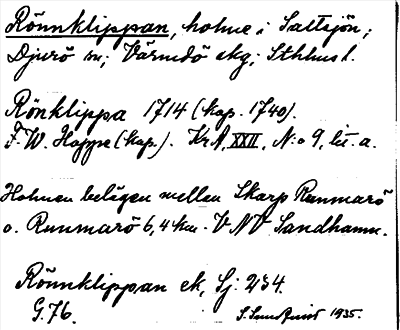 Rönnklippan, holme i Saltsjön;
Djurö sn; Värmdö skg; Sthlms l.
Rönklippa 1714 (kop. 1740).
F. W. Hoppe (kop.). KrA, XXII, N:o 9, lit. a.
Holmen belägen mellan Skarp Runmarö
o. Runmarö 6,4 km. VNV Sandhamn.
Rönnklippan ek, Sj: 234.
G. 76. 1935.